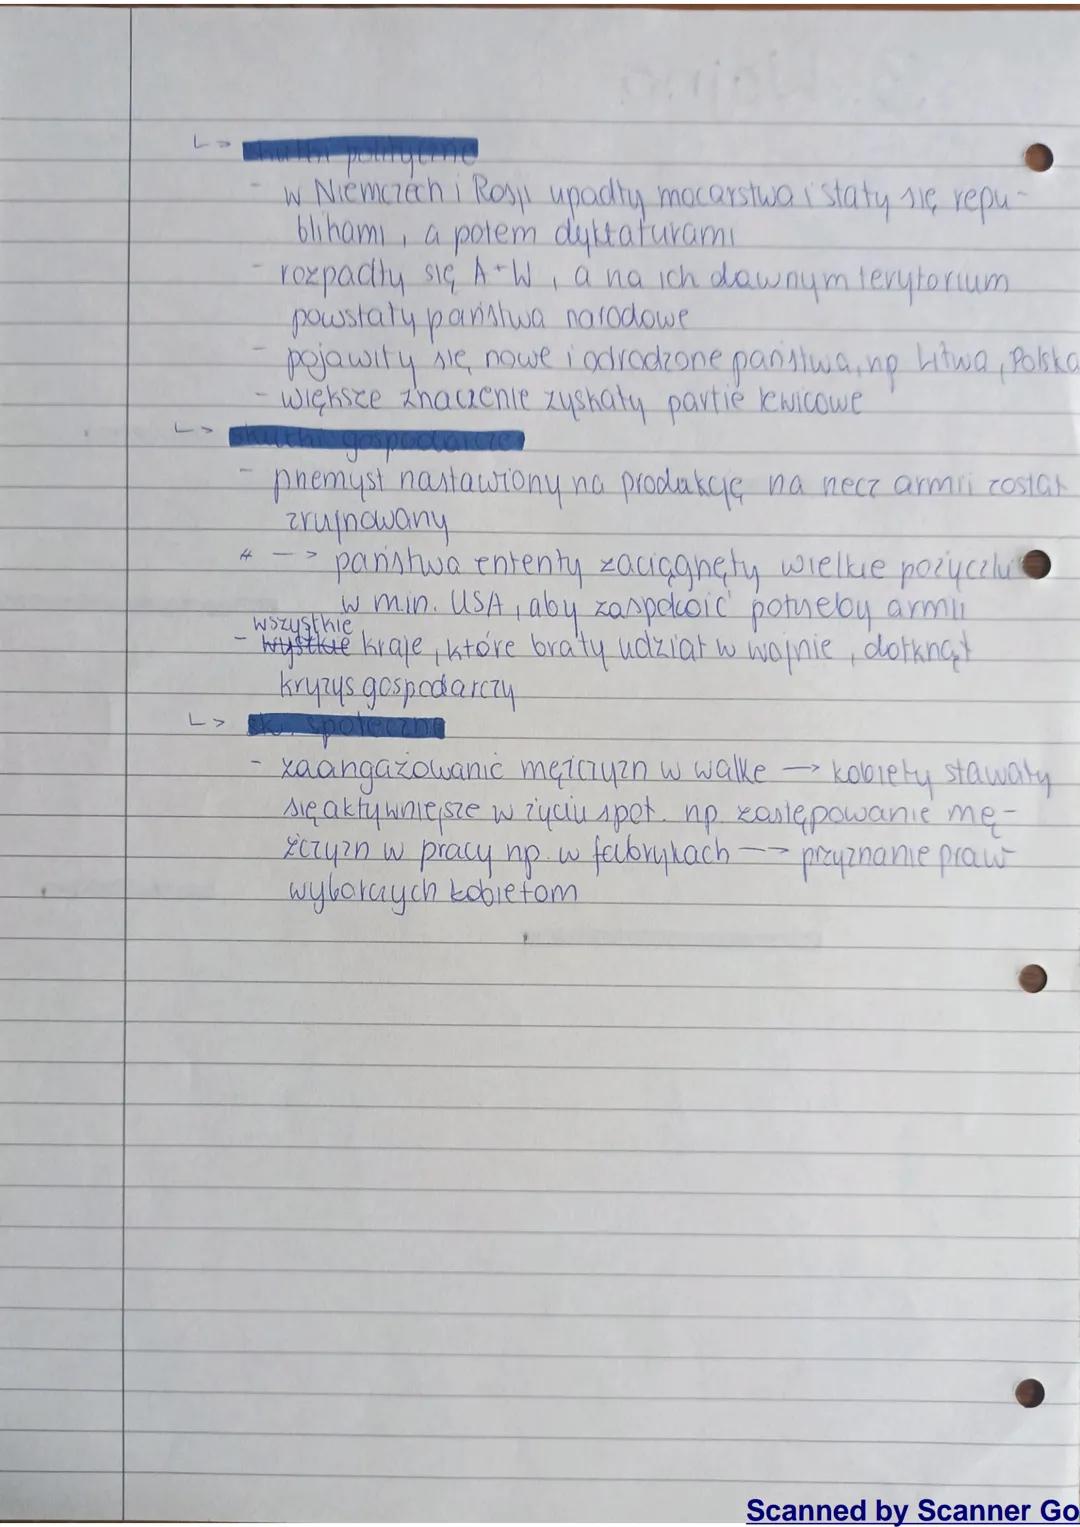 ↳ skutki polityczne
- w Niemczech i Rosji upadły mocarstwa i stały się repu-
blikami, a potem dyktaturami
- rozpadły się A-W, a na ich dawnym terytorium
powstały państwa narodowe
- pojawiły się nowe i odrodzone państwa, np Litwa, Polska
- większe znaczenie zyskały partie lewicowe
↳ skutki gospodarcze
- przemysł nastawiony na produkcję na rzecz armii został
zrujnowany
* --> państwa ententy zaciągnęły wielkie pożyczki
w min. USA, aby zaspokoić potrzeby armii
wszystkie
- wystkie kraje, które brały udział w wojnie, dotknął
kryzys gospodarczy
↳ sk. społeczne
- zaangażowanie mężczyzn w walkę → kobiety stawały
się aktywniejsze w życiu społ. np zastępowanie mę-
żczyzn w pracy np. w fabrykach --> przyznanie praw
wyborczych kobietom
Scanned by Scanner Go